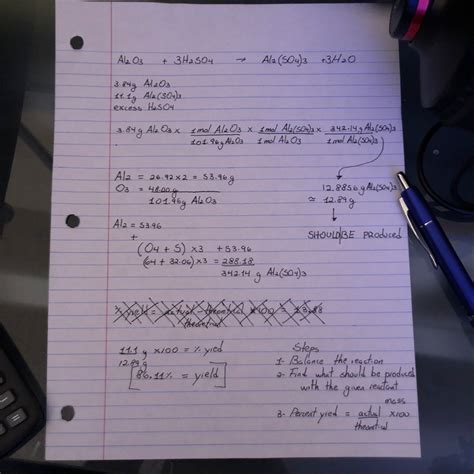 Al2O3 + 3H2SO4 → Al2(SO4)3 + 3H2O
3.84g Al2O3
11.1g Al2(SO4)3
excess H2SO4
3.84g Al2O3 × 1mol Al2O3 × 1mol Al2(SO4)3 × 342.14g Al2(SO4)3
101.96g Al2O3 1mol Al2O3 1mol Al2(SO4)3
Al2 = 26.92×2 = 53.96g
O3 = 48.00g
101.96g Al2O3
12.8856g Al2(SO4)3
≈ 12.89g
SHOULD BE produced
Al2 = 53.96
+
(O4 + S)×3 + 53.96
(64 + 32.06)×3 = 288.18
342.14g Al2(SO4)3
% yield = actual - theoretical ×100 = 13.88
theoretical
11.1g ×100 = % yied
12.89g
86.11% = yield
Steps
1- Balance the reaction
2- Find what should be produced
with the given reactant
mass
3- Percent yield = actual ×100
theoretical